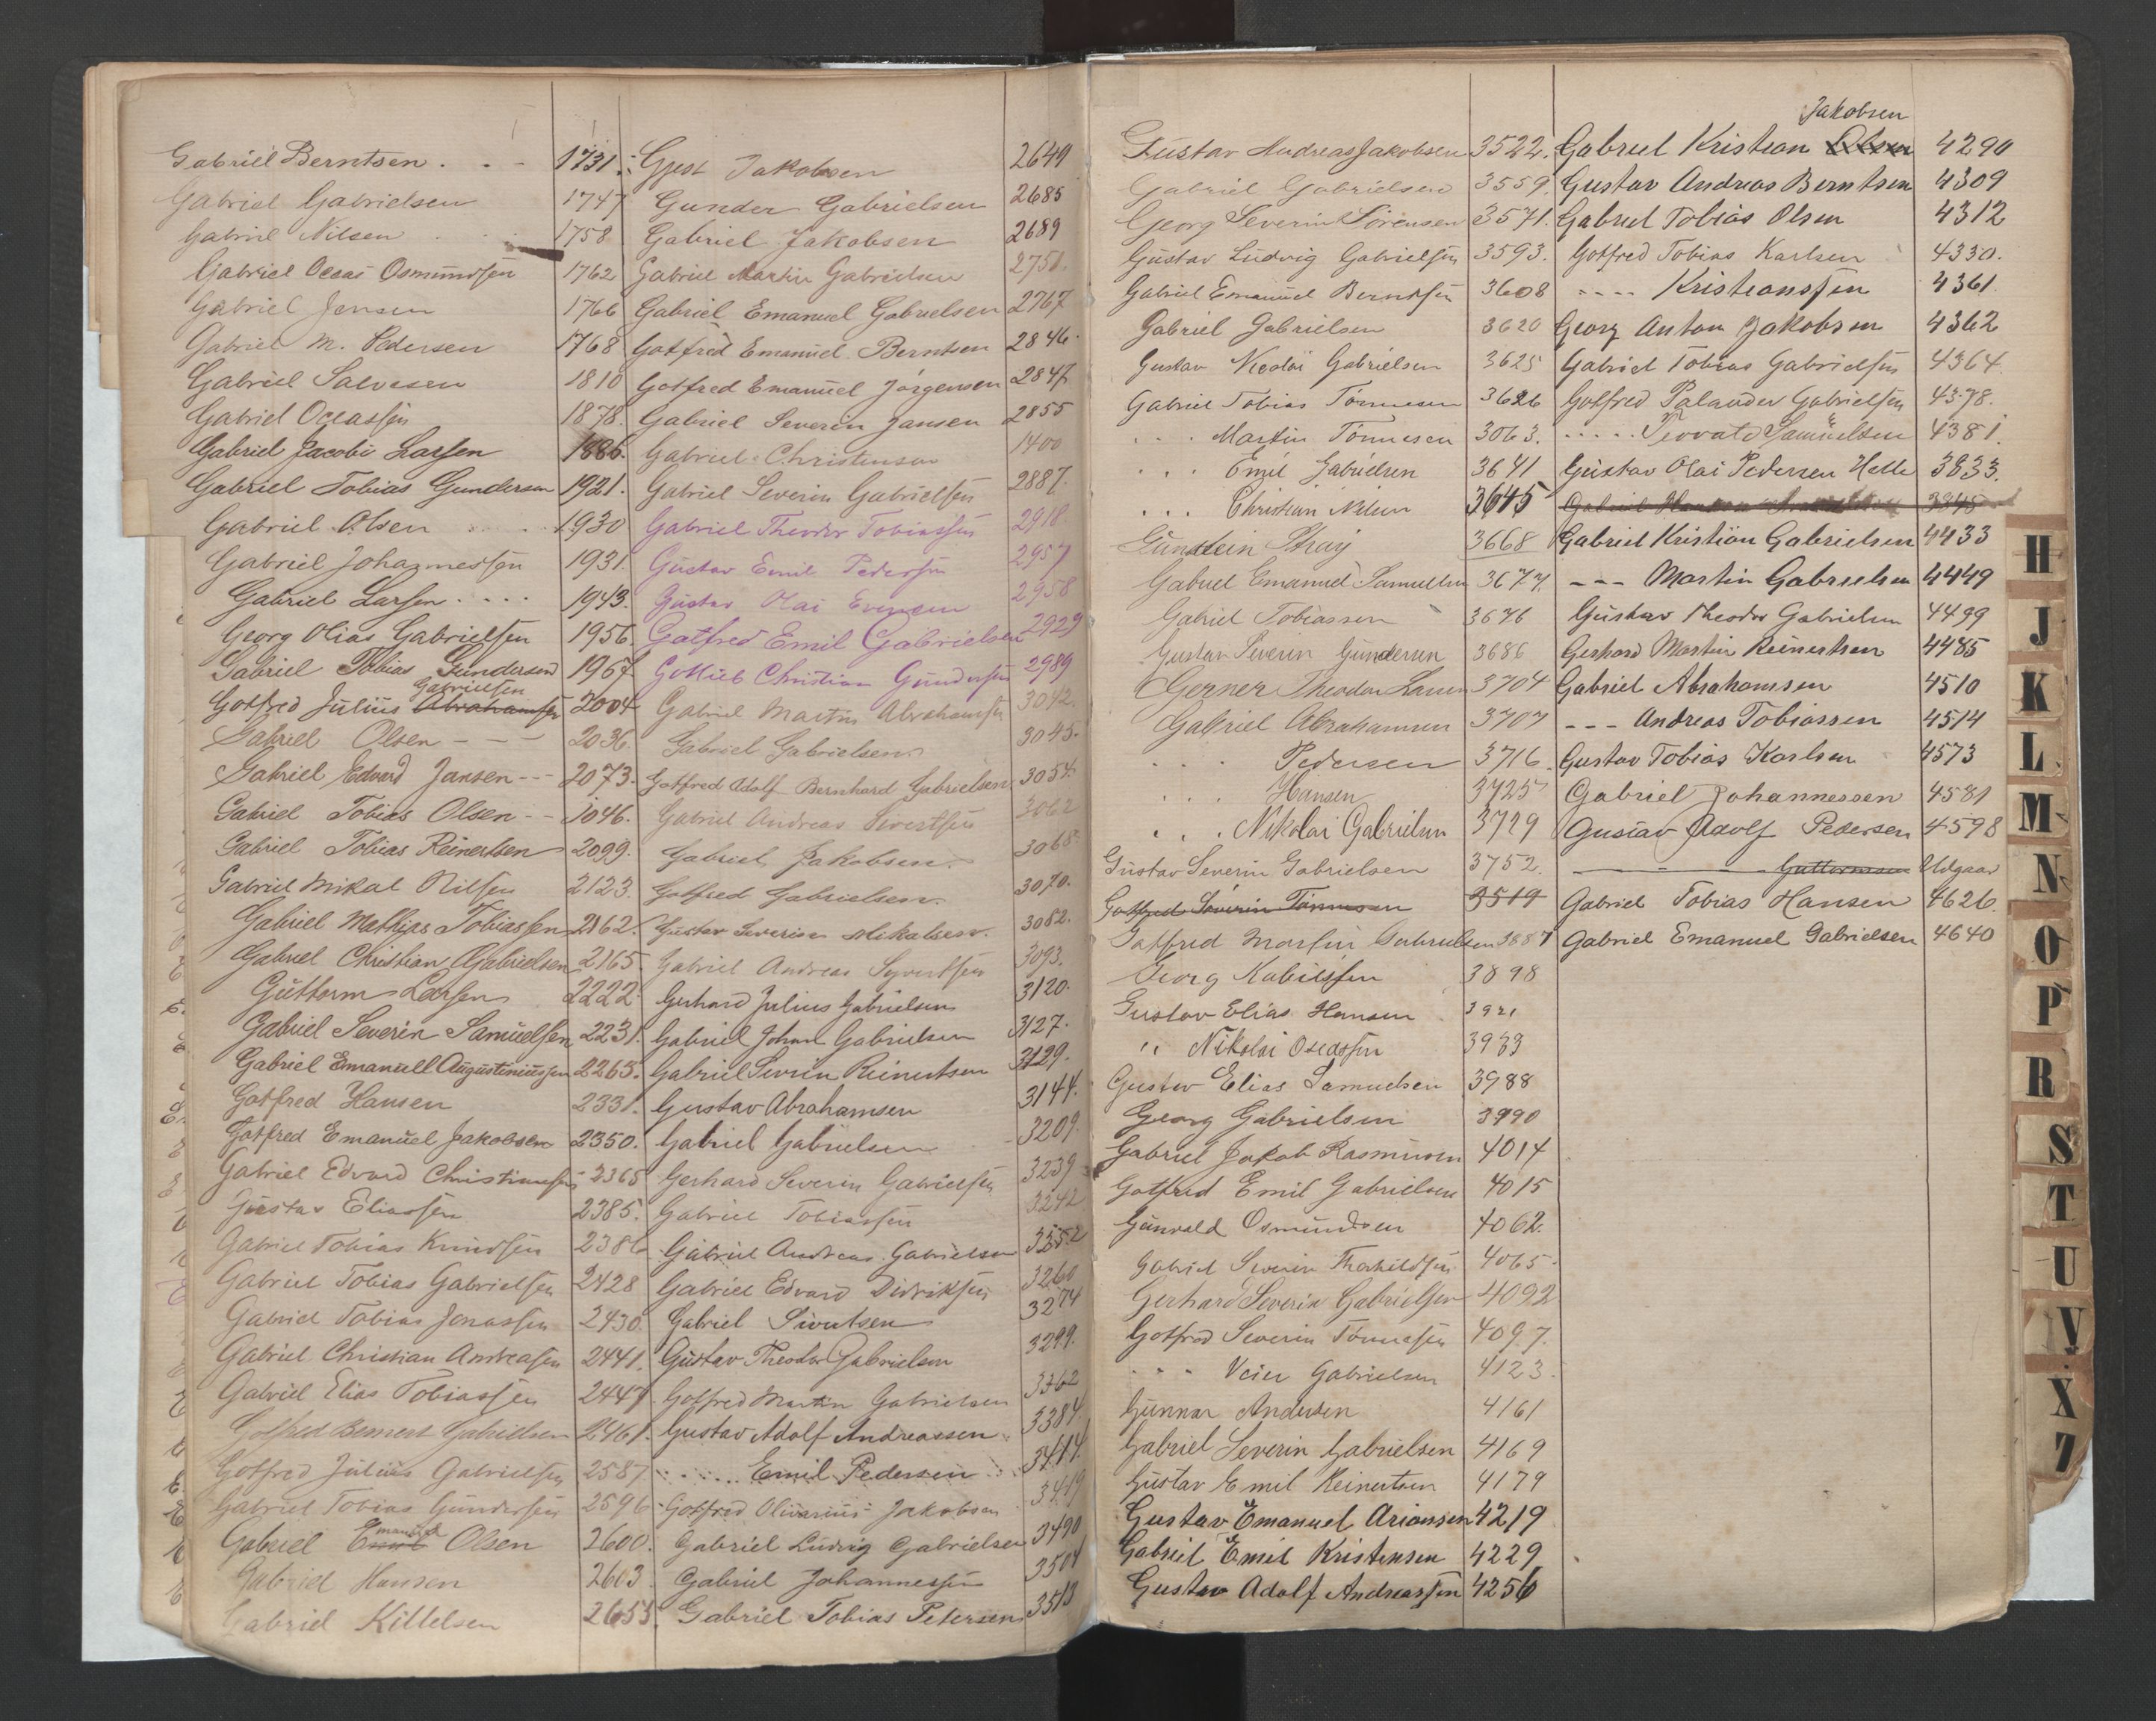 Gabriel Berntsen . . - 1731.
Gabriel Gabrielsen 1747
Gabriel Nilsen . . 1758
Gabriel Oceas Osmundsen 1762
Gabriel Jensen 1766
Gabriel M. Pedersen 1768
Gabriel Salvesen 1810
Gabriel Oceassen 1878.
Gabriel Jacobi Larsen 1886.
Gabriel Tobias Gundersen 1921.
Gabriel Olsen 1930
Gabriel Johannessen 1931.
Gabriel Larsen . . . . 1943.
Georg Olias Gabrielsen 1956
Gabriel Tobias Gundersen 1967
Gabrielsen
Gotfred Julius Abrahamsen 2004
Gabriel Olsen - - - 2036.
Gabriel Edvard Jansen --- 2073.
Gabriel Tobias Olsen -- 1046.
Gabriel Tobias Reinertsen 2099.
Gabriel Mikal Nilsen 2123.
Gabriel Mathias Tobiassen 2162.
Gabriel Christian Gabrielsen 2165.
Guttorm Larsen 2222.
Gabriel Severin Samuelsen 2231.
Gabriel Emanuell Augustiniussen 2265.
Gotfred Hansen 2331.
Gotfred Emanuel Jakobsen 2350.
Gabriel Edvard Christiansen 2365
Gustav Eliassen 2385.
Gabriel Tobias Knudsen 2386
Gabriel Tobias Gabrielsen 2428
Gabriel Tobias Jonassen 2430
Gabriel Christian Andreasen 2441.
Gabriel Elias Tobiassen 2447
Gotfred Bernert Gabrielsen 2461.
Gotfred Julius Gabrielsen 2587.
Gabriel Tobias Gundersen 2596
Emanuel
Gabriel Emil Olsen 2600.
Gabriel Hansen 2603.
Gabriel Killelsen 2655.
Gjest Jakobsen 2649
Gunder Gabrielsen 2685
Gabriel Jakobsen 2689
Gabriel Martin Gabrielsen 2751.
Gabriel Emanuel Gabrielsen 2767
Gotfred Emanuel Berntsen 2846.
Gotfred Emanuel Jörgensen 2847
Gabriel Severin Jansen 2855
Gabriel Christensen 1400
Gabriel Severin Gabrielsen 2887.
Gabriel Theodor Tobiassen 2918.
Gustav Emil Pedersen 2957
Gustav Olai Evensen 2958
Gotfred Emil Gabrielsen 2929
Gottlieb Christian Gundersen 2989
Gabriel Martin Abrahamsen 3042.
Gabriel Gabrielsen 3045.
Gotfred Adolf Bernhard Gabrielsen 3054.
Gabriel Andreas Sivertsen 3062
Gabriel Jakobsen. 3065.
Gotfred Gabrielsen. 3070.
Gustav Severin Mikalsen. 3082.
Gabriel Andreas Syvertsen 3093.
Gerhard Julius Gabrielsen 3120.
Gabriel Johan Gabrielsen 3127.
Gabriel Severin Reinertsen 3129.
Gustav Abrahamsen 3144.
Gabriel Gabrielsen 3209.
Gerhard Severin Gabrielsen 3239
Gabriel Tobiassen 3242
Gabriel Andreas Gabrielsen 3252
Gabriel Edvard Didriksen 3260
Gabriel Sivertsen 3274
Gustav Theodor Gabrielsen 3299.
Gotfred Martin Gabrielsen 3362
Gustav Adolf Andreassen 3384.
. . . . . . Emil Pedersen 3414.
Gotfred Olivarius Jakobsen 3419
Gabriel Ludvig Gabrielsen 3490
Gabriel Johannessen 3504
Gabriel Tobias Petersen 3513
Gustav Andreas Jakobsen 3522.
Gabriel Gabrielsen 3559.
Georg Severin Sörensen 3571.
Gustav Ludvig Gabrielsen 3593.
Gabriel Emanuel Berntsen 3608
Gabriel Gabrielsen 3620
Gustav Nicolai Gabrielsen 3625
Gabriel Tobias Tönnesen 3626
. . . Martin Tönnesen 3063.
. . . Emil Gabrielsen 3641
. . . Christian Nilsen 3645
Gunstein Stray 3668
Gabriel Emanuel Samuelsen 3677.
Gabriel Tobiassen 3676
Gustav Severin Gundersen 3686
Gerner Theodor Larsen 3704
Gabriel Abrahamsen 3707
. . . Pedersen 3716
. . . Hansen 3725
. . . Nikolai Gabrielsen 3729
Gustav Severin Gabrielsen 3752.
Gotfred Severin Tönnesen 3519
Gotfred Martin Gabrielsen 3887
Georg Kabilssen 3898
Gustav Elias Hansen 3921
" Nikolai Osedssen 3933
Gustav Elias Samuelsen 3988
Georg Gabrielsen 3990
Gabriel Jakob Rasmussen 4014
Gotfred Emil Gabrielsen 4015
Gunvald Osmundsen 4062.
Gabriel Severin Thorkildsen 4065.
Gerhard Severin Gabrielsen 4092
Gotfred Severin Tönnesen 4097.
. . . Veier Gabrielsen 4123.
Gunnar Andersen 4161
Gabriel Severin Gabrielsen 4169
Gustav Emil Reinertsen 4179
Gustav Emanuel Ariansen 4219
Gabriel Emil Kristensen 4229
Gustav Adolf Andreassen 4256
Jakobsen
Gabriel Kristian Olsen 4290
Gustav Andreas Berntsen 4309
Gabriel Tobias Olsen 4312
Gotfred Tobias Karlsen 4330.
---- Kristianssen 4361
Georg Anton Jakobsen 4362
Gabriel Tobias Gabrielsen 4364
Gotfred Palander Gabrielsen 4378.
. . . . . Samuelsen 4381.
Gustav Olai Pedersen Helle 3833.
Gabriel 3345
Gabriel Kristian Gabrielsen 4433
--- Martin Gabrielsen 4449
Gustav Theodor Gabrielsen 4499
Gerhard Martin Reinertsen 4485
Gabriel Abrahamsen 4510
--- Andreas Tobiassen 4514
Gustav Tobias Karlsen 4573
Gabriel Johannessen 4581
Gustav Adolf Pedersen 4598
- - - Guttormsen Udgaar
Gabriel Tobias Hansen 4626.
Gabriel Emanuel Gabrielsen 4640
H
J
K
L
M
N
O
P
R
S
T
U
V
X
Z